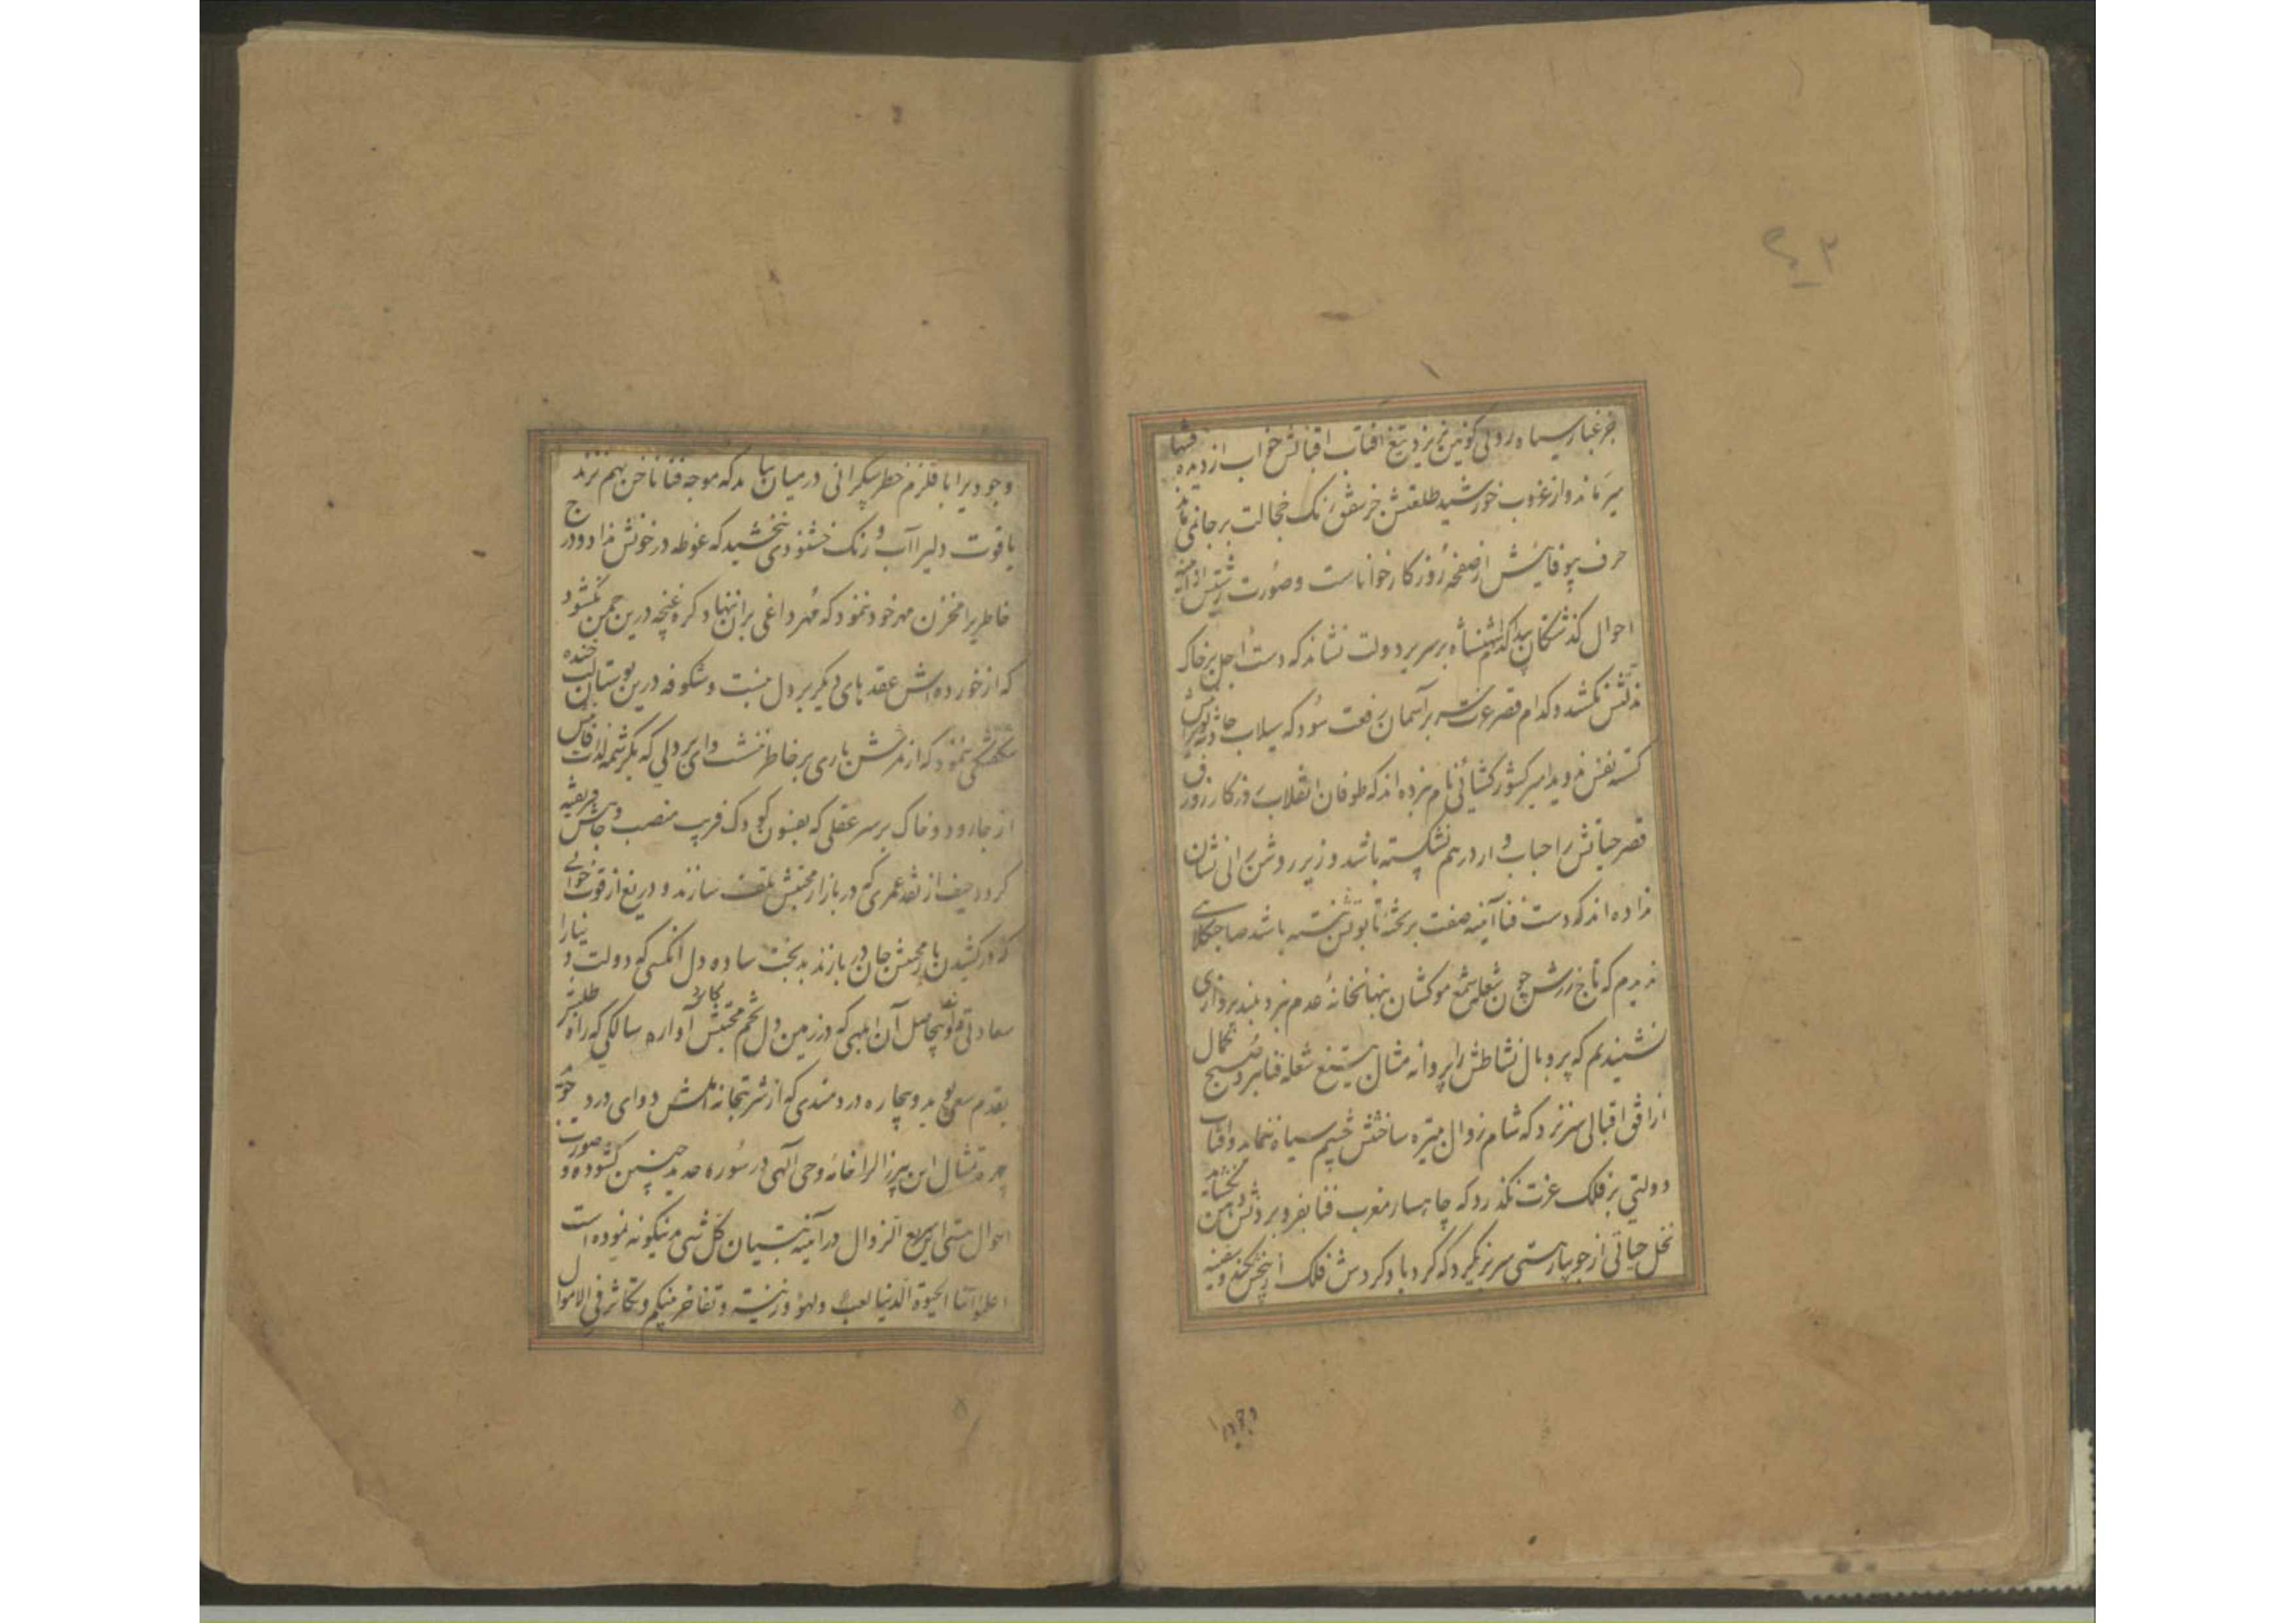 جز غبار سیاه روئی کونین نریزد تیغ آفتاب اقبالش خواب از دیده
سیر نماند و از غروب خورشید طلعتش جز شفق رنک خجالت بر جا نمی ماند
حرف بیوفائیش از صفحهٔ روزکار خوانا است و صورت زشتیش از آینهٔ
احوال کذشتکان پیدا کدام شهنشاه بر سریر دولت نشاند که دست اجل بر خاک
مذلتش نکشد و کدام قصر عزت سر بر آسمان رفعت سود که سیلاب حادثه
کشور کشائی نام نبرده اند که طوفان انقلاب روزکار زورق
قصر حیاتش را حباب وار در هم نشکسته باشد و زیر روشن رائی نشان
نداده اند که دست فنا آینه صفت بر تختهٔ تابوتش نبسته باشد صاحب کلاهی
ندیدم که تاج زرش چون شعله شمع موکشان بنهانخانهٔ عدم نبرد بلند پروازی
نشنیدیم که پر و بال نشاطش را پروانه مثال بتیغ شعله فنا نبرد صبح کمال
از افق اقبالی سر نزد که شام زوال تیره ساختش چشم سیاه ننماید و آفتاب
دولتی بر فلک عزت نکذرد که چاهسار مغرب فنا بفرو بردنش دهن نکشاید
نخل حیاتی از جویبار هستی سر بر نکیرد که کردباد کردش فلک از بیخش نکند و سفینه
وجودیرا
وجودیرا با قلزم خطر بیکرانی در میان نیاید که موجه فنا ناخن بهم نزند
یاقوت دلیرا آب و رنک خشنودی نبخشید که غوطه در خونش نداد و درج
خاطریرا مخزن مهر خود ننمود که مهر داغی بر آن ننهاد کره غنچه درین چمن نکشود
که از خورده اش عقدهای دیکر بر دل نبست و شکوفه درین بوستان لب خنده
شکفتکی ننمود که از ثمرش باری بر خاطر ننشست وای بر دلی که بکرشمه لذات فانیش
از جا رود و خاک بر سر عقلی که بفسون کودک فریب منصب و جاهش فریفته
کردد حیف از نقد عمری که در بازار محبتش تلف سازند و دریغ از قوت
که در کشیدن بار محبتش جان در بازند بدبخت ساده دل آنکسی که دولت دنیا را
سعادتی داند و بیحاصل آن ابلهی که در زمین دل تخم محبتش کارد آواره سالکی که راه طلبش
بقدم سعی پوید و بیچاره دردمندی که از شربتخانه اش دوای درد جوید
چهره تمثال این پیر زال را خانهٔ وحی الهی در سوره حدید چنین کشوده و صورت
احوال هستی این سریع الزوال در آینه تبیان کل شیء بدینکونه نموده است
اعلموا انما الحیوة الدنیا لعب ولهو وزینة وتفاخر بینکم وتکاثر فی الاموال